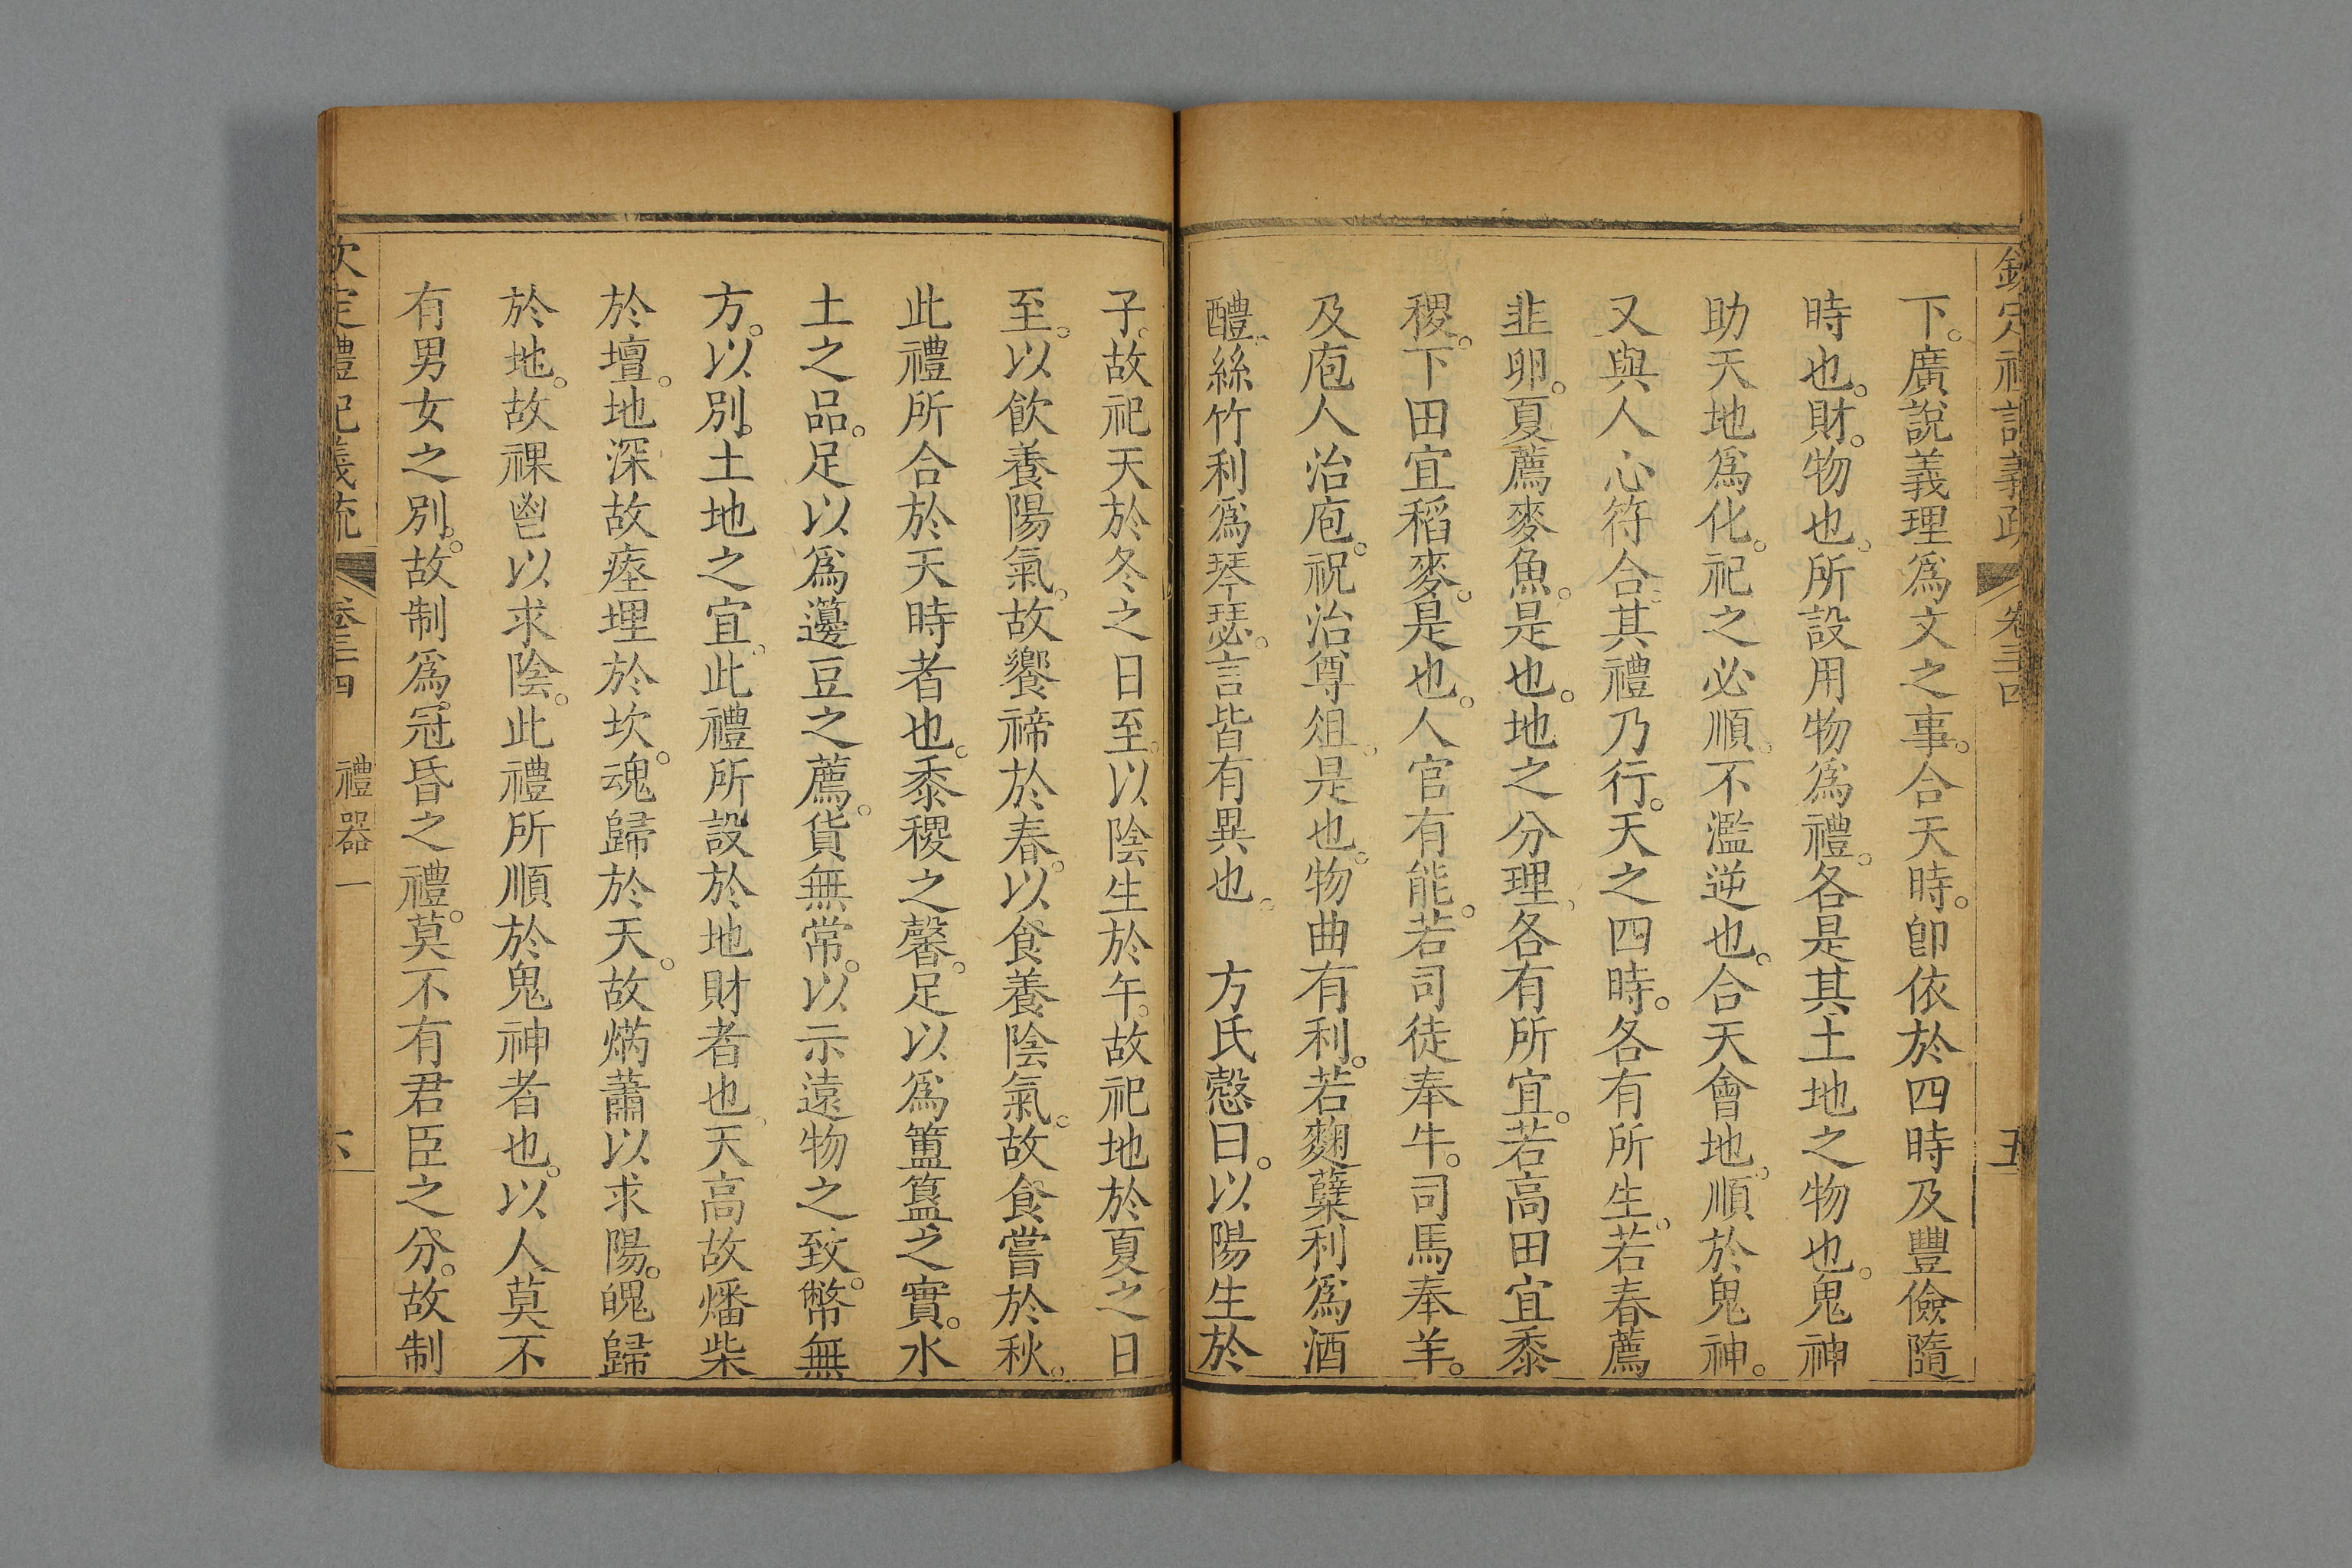 欽定禮記義疏 卷三四 五
下。廣說義理爲文之事。合天時。卽依於四時及豐儉隨
時也。財。物也。所設用物爲禮。各是其土地之物也。鬼神
助天地爲化。祀之必順。不濫逆也。合天會地。順於鬼神。
又與人心符合。其禮乃行。天之四時。各有所生。若春薦
韭卵。夏薦麥魚。是也。地之分理。各有所宜。若高田宜黍
稷。下田宜稻麥。是也。人官有能。若司徒奉牛。司馬奉羊。
及庖人治庖。祝治尊俎。是也。物曲有利。若麴櫱利爲酒
醴。絲竹利爲琴瑟。言皆有異也。 方氏慤曰。以陽生於
子。故祀天於冬之日至。以陰生於午。故祀地於夏之日
至。以飮養陽氣。故饗禘於春。以食養陰氣。故食嘗於秋。
此禮所合於天時者也。黍稷之馨。足以爲簠簋之實。水
土之品。足以爲籩豆之薦。貨無常。以示遠物之致。幣無
方。以別。土地之宜。此禮所設於地財者也。天高故燔柴
於壇。地深故瘞埋於坎。魂歸於天。故焫蕭以求陽。魄歸
於地。故祼鬯以求陰。此禮所順於鬼神者也。以人莫不
有男女之別。故制爲。冠昏之禮。莫不有君臣之分。故制
欽定禮記義疏 卷三四 禮器一